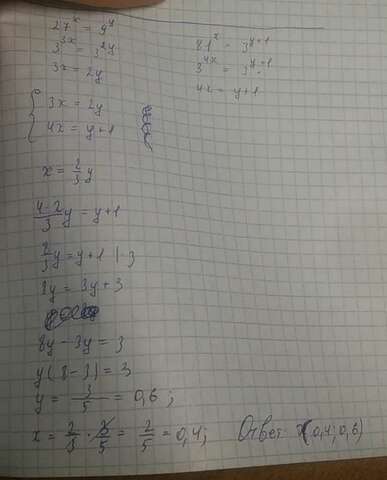 27^x = 9^y
3^{3x} = 3^{2y}
3x = 2y
81^x = 3^{y+1}
3^{4x} = 3^{y+1}
4x = y+1
{ 3x = 2y
4x = y+1
x = \frac{2}{3}y
\frac{4·2}{3}y = y+1
\frac{8}{3}y = y+1 | ·3
8y = 3y+3
8y - 3y = 3
y(8-3) = 3
y = \frac{3}{5} = 0,6;
x = \frac{2}{3} · \frac{3}{5} = \frac{2}{5} = 0,4;
Ответ: (0,4; 0,6)